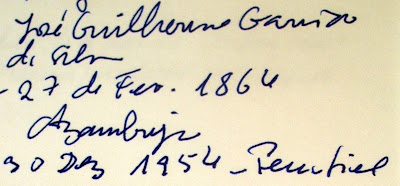 José Guilherme Garcia
da Silva
- 27 de Fev. 1864
Azambuja
30 Dez 1954 -